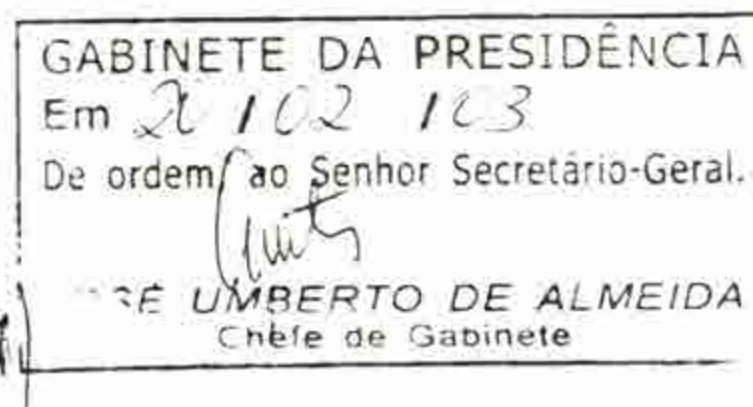 GABINETE DA PRESIDÊNCIA
Em 20 / 02 / 03
De ordem, ao Senhor Secretário-Geral.
UMBERTO DE ALMEIDA
Chefe de Gabinete